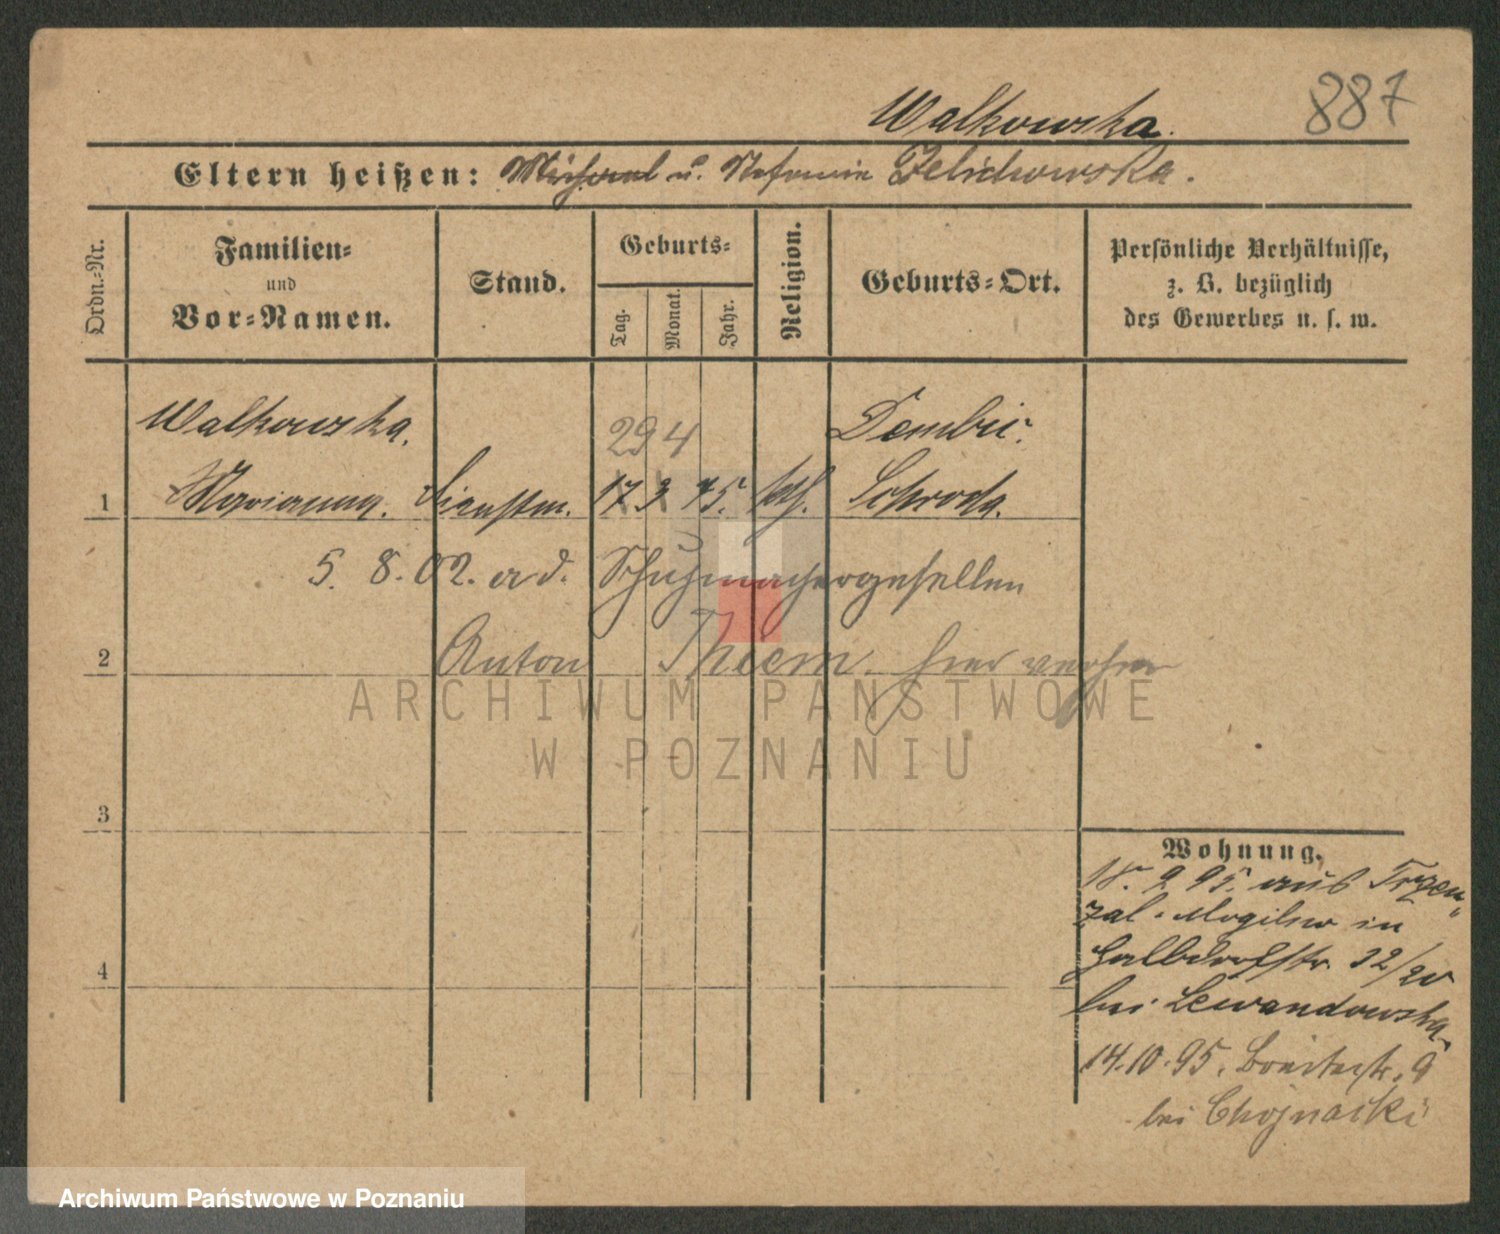 Walkowska.
887
Eltern heißen: Michael u. Stefanie Zelichowska.
Ordn.-Nr.
Familien-
und
Vor-Namen.
Stand.
Geburts-
Tag.
Monat.
Jahr.
Religion.
Geburts-Ort.
Persönliche Verhältnisse,
z. B. bezüglich
des Gewerbes u. s. w.
Walkowska,
29 4
Dembic.
1 Marianna. Dienstm. 17 3 75. kth. Schroda.
5. 8. 02. a d. Schuhmachergesellen
2 Anton Thiem. hier verh
ARCHIWUM PAŃSTWOWE
W POZNANIU
3
Wohnung.
18. 9 95. aus
zal. Mogilno in
4 Halbdorfstr 32/
bei Lewandowska
14.10.95. 9
bei Chojnacki
Archiwum Państwowe w Poznaniu